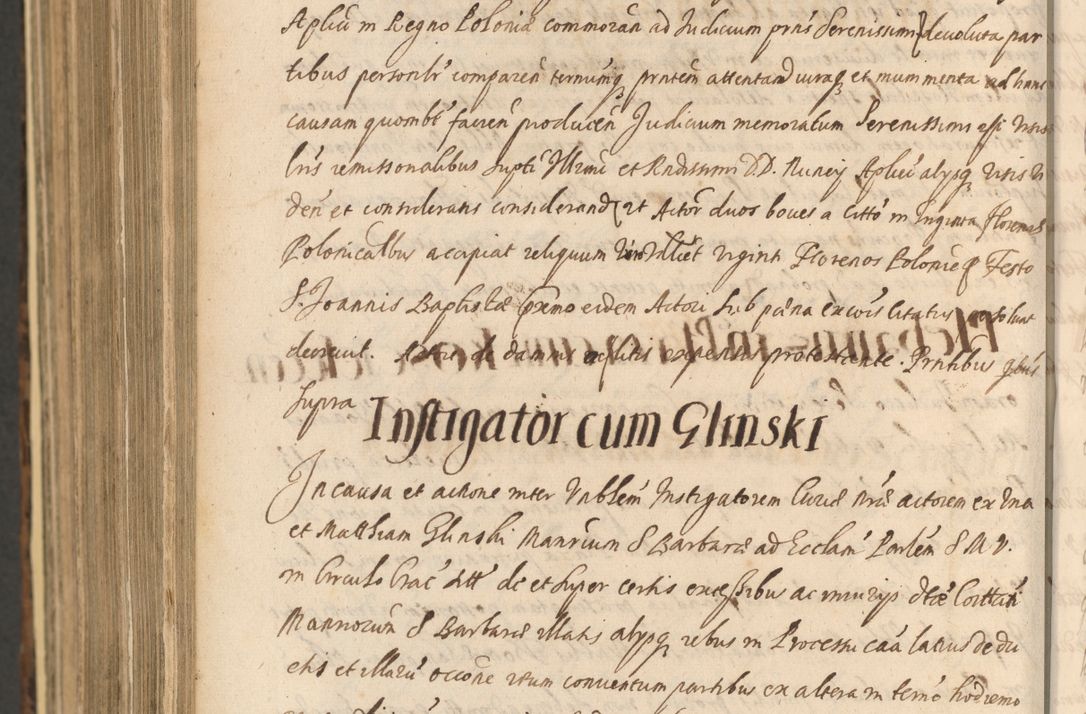 Aplicu in Regno Poloniæ commoran ad Judicium prnis Serenissimi devoluta par
tibus personlr comparen terminq prntem attentand iuraq et munimenta ad hanc
causam quombt facien producen Judicium memoratum Serenissimi
lris remissorialibus supti Illrmi et Rndissimi D.D. Nuncij Aplici alysq visis vi
den et consideratis considerand ut Actor duos boves a Citto in
Polonicalbus accipiat reliquum viginti Florenos Polonic q Festo
S. Joannis Baptistæ primo eidem Actori sub pæna excois Citatus persolvat
decrevit. Actore de damnis et litis expensis protestante. Prntibus qbus
supra
Instigator cum Glinski
In causa et actione inter Nblem Instigatorem Curiæ nræ actorem ex una
et Matthiam Glinski Mansrium S Barbaræ ad Ecclam Parlem B M V.
in Circulo Crac Citt de et super certis excessibus ac iniurijs dtæ Coitati
Mansriorum S Barbaræ illatis alysq rebus in Processu caæ latius dedu
ctis et illaru occone citum conventum partibus ex altera in termo hodierno